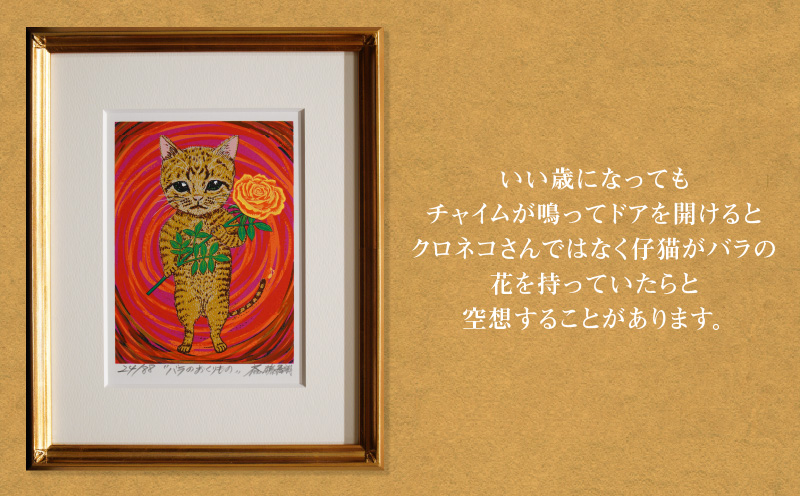 いい歳になっても
チャイムが鳴ってドアを開けると
クロネコさんではなく仔猫がバラの
花を持っていたらと
空想することがあります。
24/88 "バラのおくりもの"